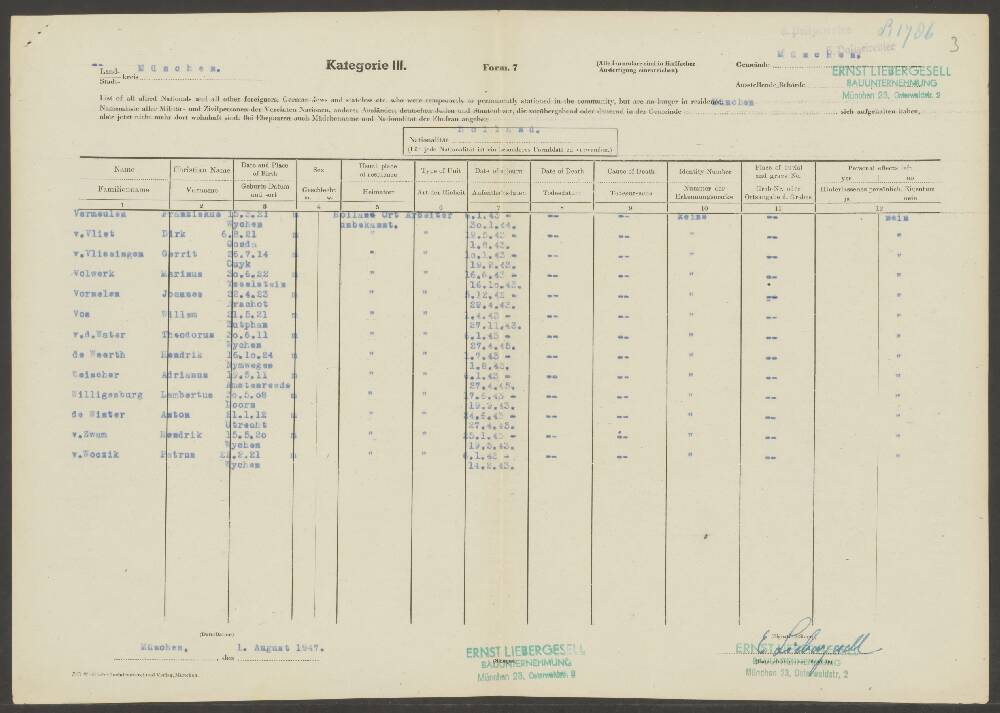 R1786
3
München.
Land-
Stadt- kreis
Kategorie III.
Form. 7
(Alle Formulare sind in fünffacher
Ausfertigung einzureichen)
Gemeinde München.
Ausstellende Behörde
ERNST LIEBERGESELL
BAUUNTERNEHMUNG
München 23, Osterwaldstr. 2
List of all allied Nationals and all other foreigners, German Jews and stateless etc. who were temporarily or permanently stationed in the community, but are no longer in residence.
Namensliste aller Militär- und Zivilpersonen der Vereinten Nationen, anderer Ausländer, deutschen Juden und Staatenloser, die vorübergehend oder dauernd in der Gemeinde München sich aufgehalten haben,
aber jetzt nicht mehr dort wohnhaft sind. Bei Ehepaaren auch Mädchenname und Nationalität der Ehefrau angeben
Nationalität Holland.
(Für jede Nationalität ist ein besonderes Formblatt zu verwenden.)
Name Christian Name Date and Place of Birth Sex Usual place of residence Type of Unit Date of sojourn Date of Death Cause of Death Identity Number Place of burial and grave No. Personal effects left yes no
Familienname Vorname Geburts-Datum und -ort Geschlecht m. w. Heimatort Art der Einheit Aufenthaltsdauer Todesdatum Todesursache Nummer der Erkennungsmarke Grab-Nr. oder Ortsangabe d. Grabes Hinterlassenes persönlich. Eigentum ja nein
1 2 3 4 5 6 7 8 9 10 11 12
Vermeulen Franziskus 15.3.21 m Holland Ort Arbeiter 4.1.43 - -- -- keine -- nein
Wychen unbekannt. 30.1.44.
v.Vliet Dirk 6.8.21 m " " 19.5.43 - -- -- " -- "
Gouda 1.8.43.
v.Vliesingen Gerrit 26.7.14 m " " 10.1.43 - -- -- " -- "
Cuyk 19.2.43.
Volwerk Marinus 30.6.22 m " " 16.6.43 - -- -- " -- "
Ysselstein 16.10.43.
Vormelen Joannes 22.4.23 m " " 5.12.42 - -- -- " -- "
29.4.43.
Vos Willem 21.5.21 m " " 1.4.43 - -- -- " -- "
Zutphen 27.11.43.
v.d.Water Theodorus 20.6.11 m " " 4.1.43 - -- -- " -- "
Wychen 27.4.45.
de Weerth Hendrik 16.10.24 m " " 1.7.43 - -- -- " -- "
Nymwegen 1.8.43.
Weischer Adrianus 19.5.11 m " " 4.1.43 - -- -- " -- "
27.4.45.
Willigenburg Lambertus 30.5.08 m " " 17.6.43 - -- -- " -- "
Doorn 19.9.43.
de Winter Anton 21.1.12 m " " 24.6.43 - -- -- " -- "
Utrecht 27.4.45.
v.Zwam Hendrik 15.5.20 m " " 25.1.43 - -- -- " -- "
Wychen 19.3.43.
v.Woczik Petrus 21.2.21 m " " 4.1.43 - -- -- " -- "
Wychen 14.2.43.
(Date/Datum)
München, den 1. August 1947.
ERNST LIEBERGESELL
BAUUNTERNEHMUNG
München 23, Osterwaldstr. 2
E. Liebergesell
ERNST LIEBERGESELL
BAUUNTERNEHMUNG
München 23, Osterwaldstr. 2